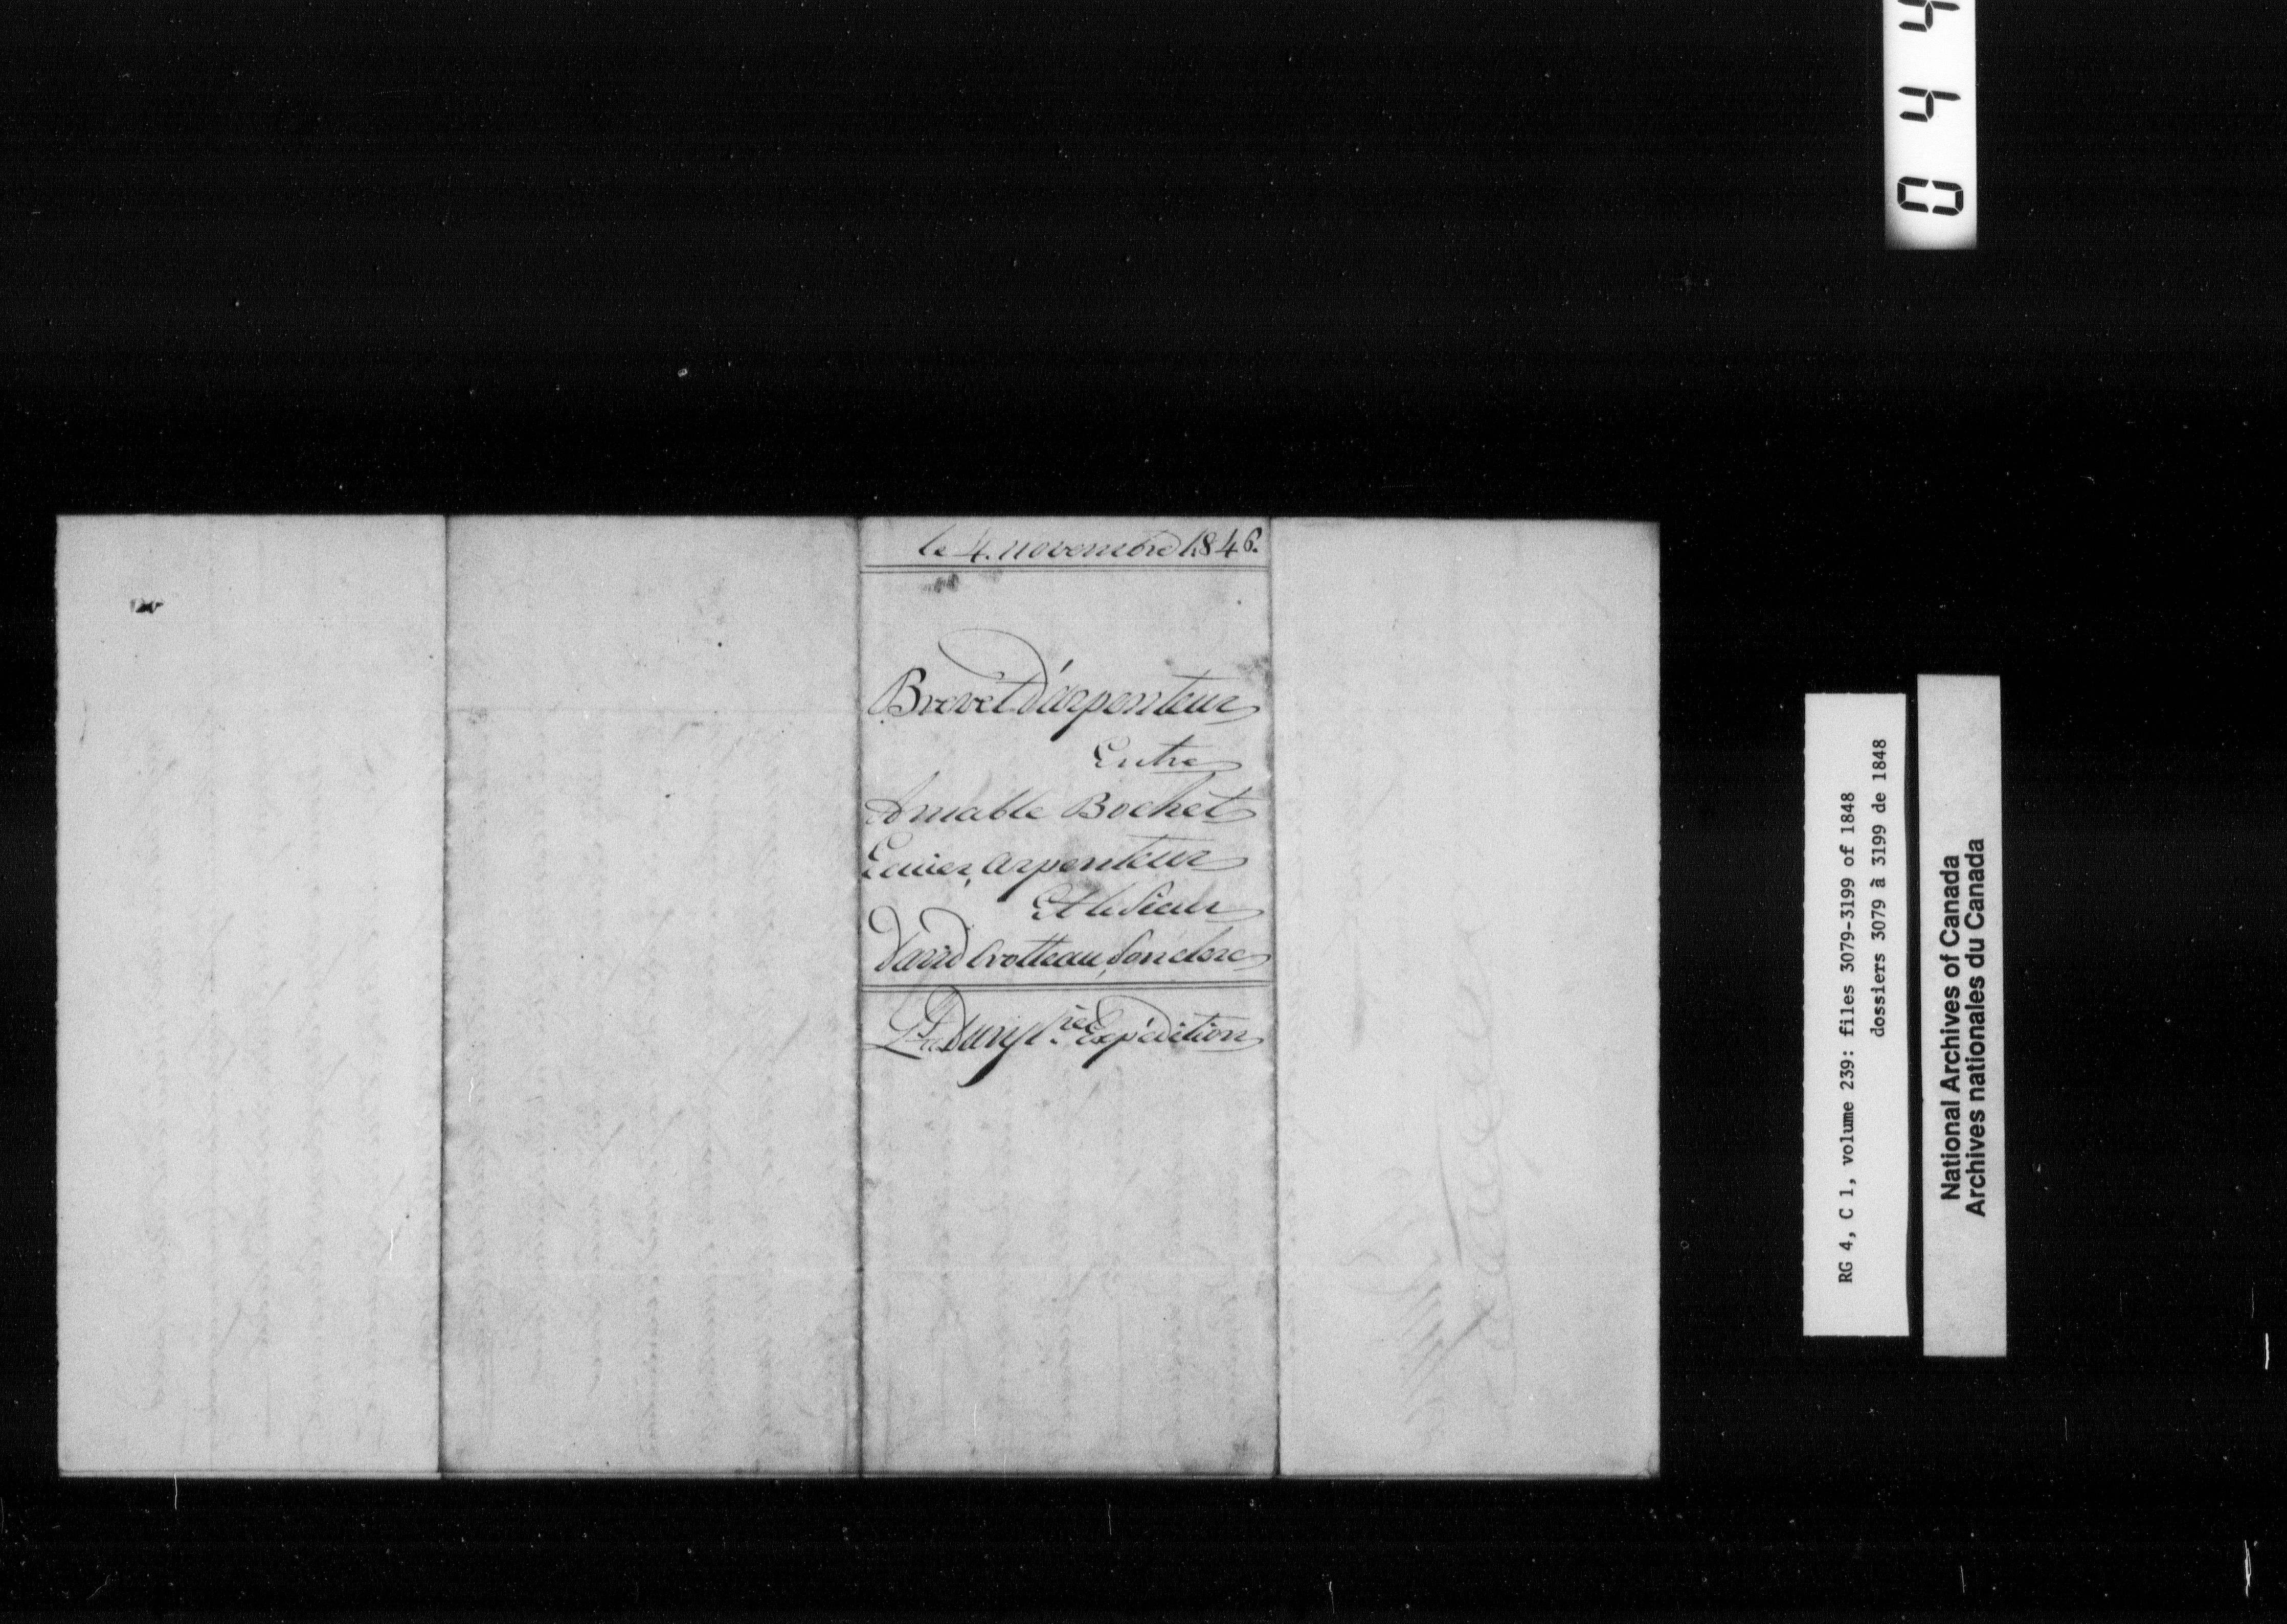 le 4. novembre 1846.
Brevet d'arpenteur
Entre
Amable Bochet
Ecuier, arpenteur
Et le Sieur
David Crotteau, son clerc
1ère Expédition
0 4 4
RG 4, C 1, volume 239: files 3079-3199 of 1848
dossiers 3079 à 3199 de 1848
National Archives of Canada
Archives nationales du Canada